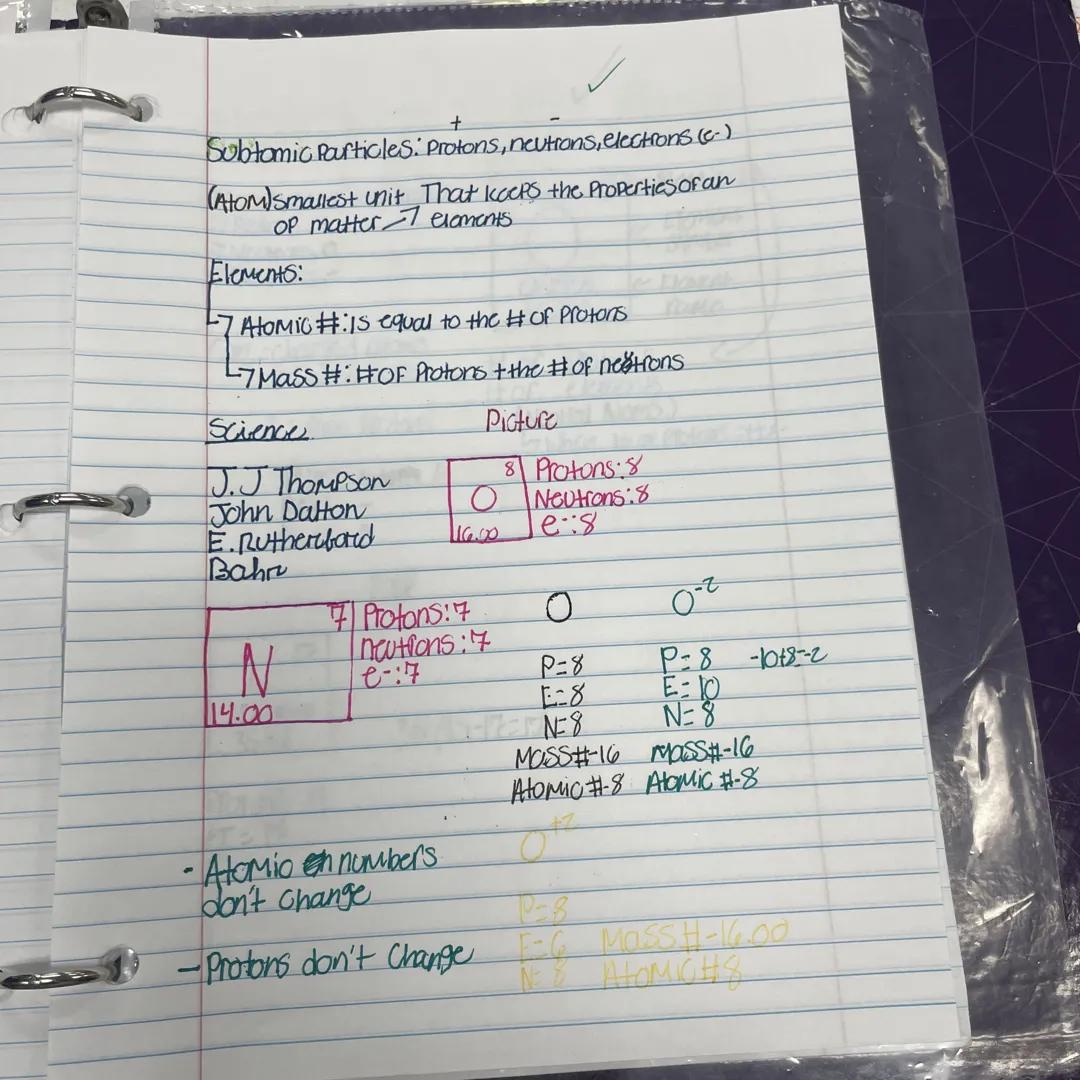 + -
Subtomic Particles: Protons, neutrons, electrons (e-)
(Atom) smallest unit That keeps the Properties of an
of matter → elements
Elements:
→ Atomic #: is equal to the # of Protons
→ Mass #: # OF Protons + the # of neutrons
Science Picture
J.J Thompson
John Dalton
E. Rutherford
Bahr
8
O
16.00
Protons: 8
Neutrons: 8
e-: 8
7
N
14.00
Protons: 7
neutrons: 7
e-: 7
O
P=8
E=8
N=8
Mass#-16
Atomic #-8
O-2
P=8 -10+8=-2
E=10
N=8
Mass#-16
Atomic #-8
- Atomic numbers
don't change
- Protons don't change
O+2
P=8
E=6 Mass#-16.00
N=8 Atomic #8